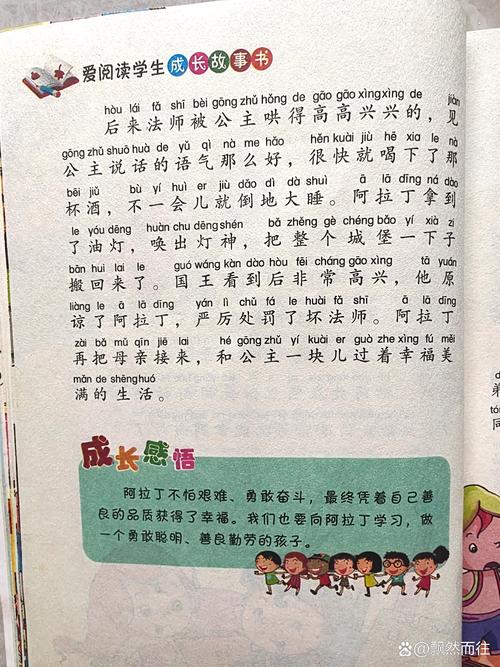 爱阅读学生成长故事书
hòu lái fǎ shī bèi gōng zhǔ hǒng de gāo gāo xìng xìng de jiàn
后来法师被公主哄得高高兴兴的，见
gōng zhǔ shuō huà de yǔ qì nà me hǎo hěn kuài jiù hē xia le nà
公主说话的语气那么好，很快就喝下了那
bēi jiǔ bù yí huì er jiù dǎo dì dà shuì ā lā dīng ná dào
杯酒，不一会儿就倒地大睡。阿拉丁拿到
le yóu dēng huàn chu dēng shén bǎ zhěng gè chéng bǎo yí xià zi
了油灯，唤出灯神，把整个城堡一下子
bān hui lai le guó wáng kàn dào hòu fēi cháng gāo xìng tā yuán
搬回来了。国王看到后非常高兴，他原
liàng le ā lā dīng yán lì chǔ fá le huài fǎ shī ā lā dīng
谅了阿拉丁，严厉处罚了坏法师。阿拉丁
zài bǎ mǔ qīn jiē lái hé gōng zhǔ yí kuài er guò zhe xìng fú měi
再把母亲接来，和公主一块儿过着幸福美
mǎn de shēng huó
满的生活。
成长感悟
阿拉丁不怕艰难、勇敢奋斗，最终凭着自己善
良的品质获得了幸福。我们也要向阿拉丁学习，做
一个勇敢聪明、善良勤劳的孩子。
弟
同
@飘然而往